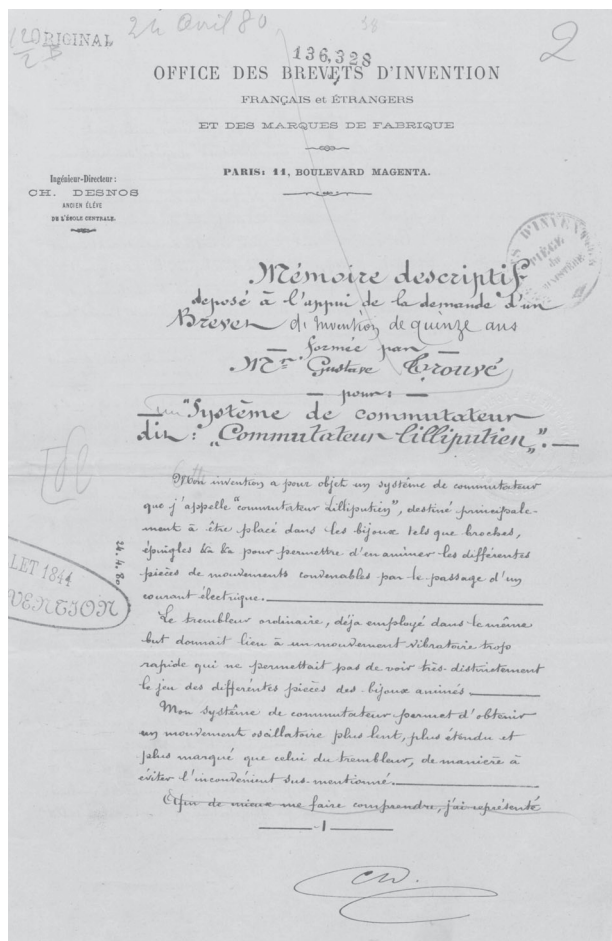 ORIGINAL
24 Avril 80
58
2
136,328
OFFICE DES BREVETS D'INVENTION
FRANÇAIS et ÉTRANGERS
ET DES MARQUES DE FABRIQUE
PARIS: 11, BOULEVARD MAGENTA.
Ingénieur-Directeur:
CH. DESNOS
ANCIEN ÉLÈVE
DE L'ÉCOLE CENTRALE.
Mémoire descriptif
déposé à l'appui de la demande d'un
Brevet d'Invention de quinze ans
formée par
Mr Gustave Trouvé
pour:
un "Système de commutateur
dit: "Commutateur lilliputien".
Mon invention a pour objet un système de commutateur
que j'appelle "commutateur Lilliputien", destiné principale-
ment à être placé dans les bijoux tels que broches,
épingles &a &a pour permettre d'en animer les différentes
pièces de mouvements convenables par le passage d'un
courant électrique.
Le trembleur ordinaire, déjà employé dans le même
but donnait lieu à un mouvement vibratoire trop
rapide qui ne permettait pas de voir très-distinctement
le jeu des différentes pièces des bijoux animés.
Mon système de commutateur permet d'obtenir
un mouvement oscillatoire plus lent, plus étendu et
plus marqué que celui du trembleur, de manière à
éviter l'inconvénient sus-mentionné.
Afin de mieux me faire comprendre, j'ai représenté
1
24.4.80
LET 1844
VENTION